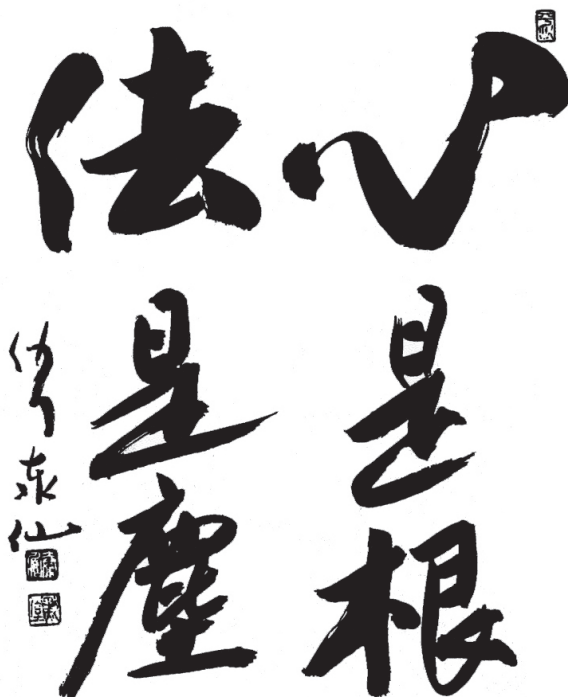 心是根
法是塵
仙